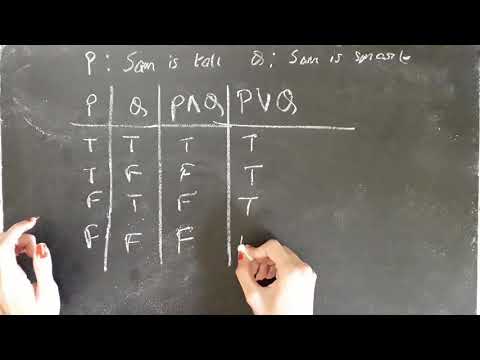 P: Sam is tall Q: Sam is smart
P Q P∧Q P∨Q
T T T T
T F F T
F T F T
F F F